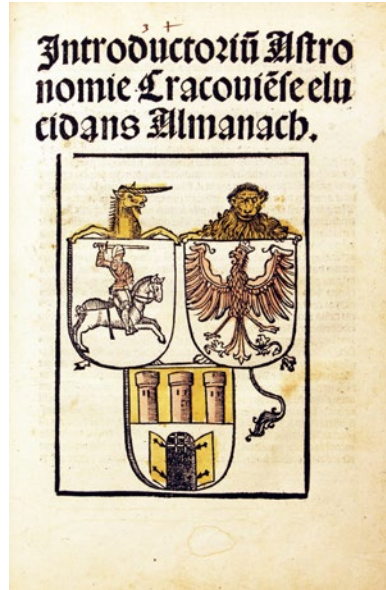 3 +
Introductoriū Astro
nomie Cracouiēse elu
cidans Almanach.